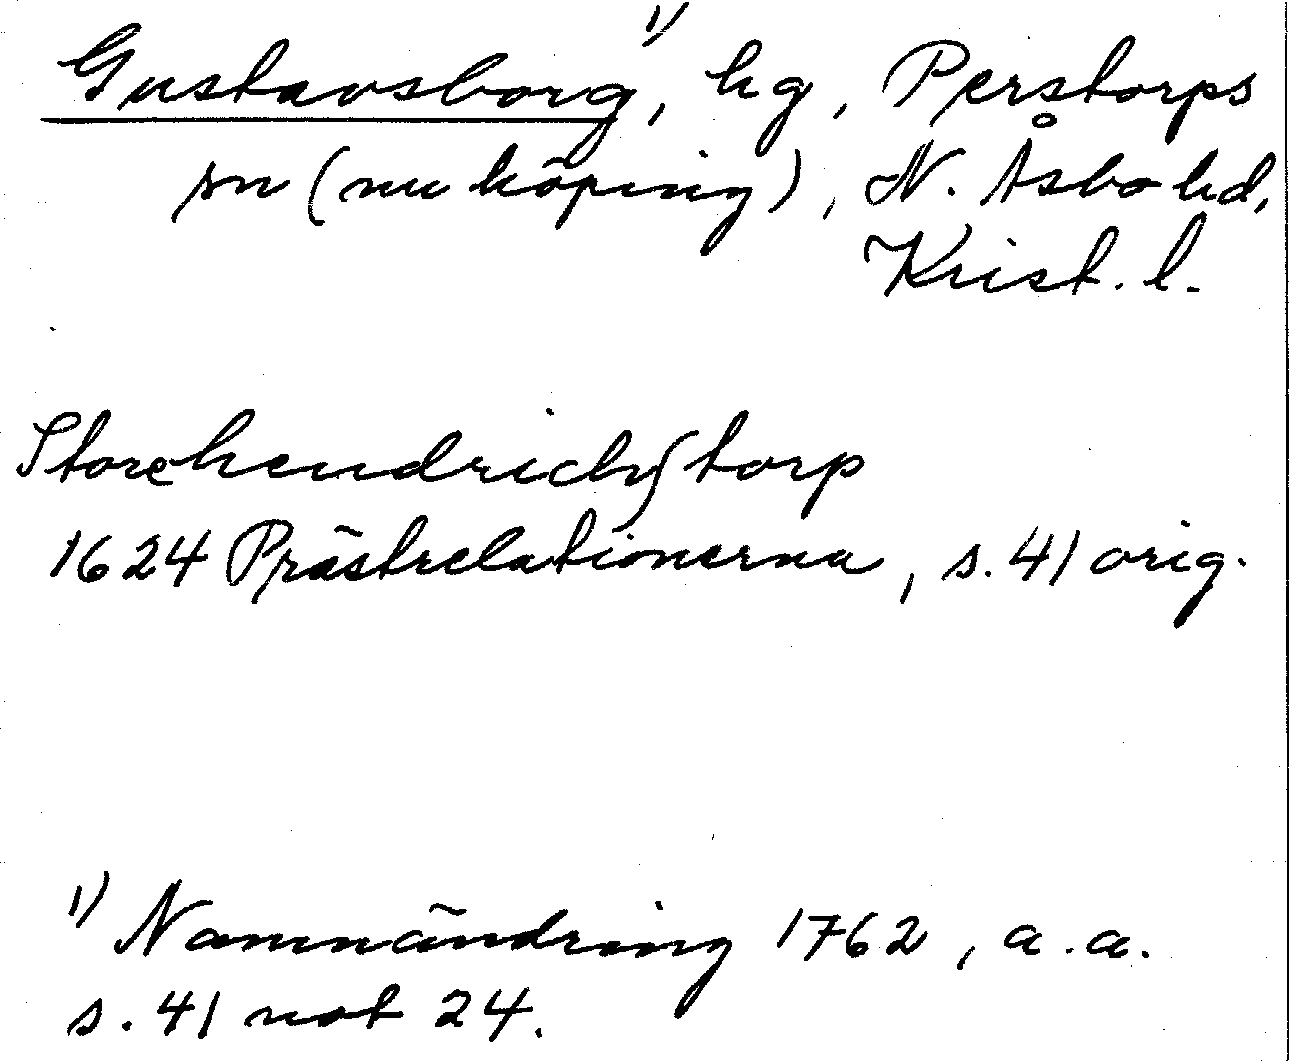 Gustavsborg ¹⁾, hg, Perstorps
sn (nu köping), N. Åsbo hd,
Krist. l.
Storehendrichstorp
1624 Prästrelationerna, s. 41 orig.
¹⁾ Namnändring 1762, a.a.
s. 41 not 24.